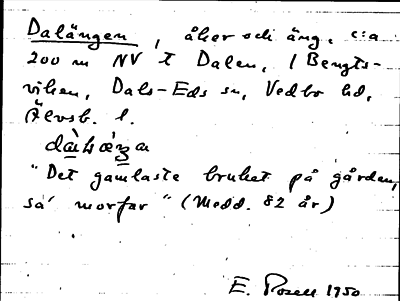 Dalängen, åker och äng. c:a
200 m NV t Dalen, i Bengts-
viken, Dals-Eds sn, Vedbo hd,
Älvsb. l.
"Det gamlaste bruket på gården,
sa' morfar" (Medd. 82 år)
E. Rosell 1950